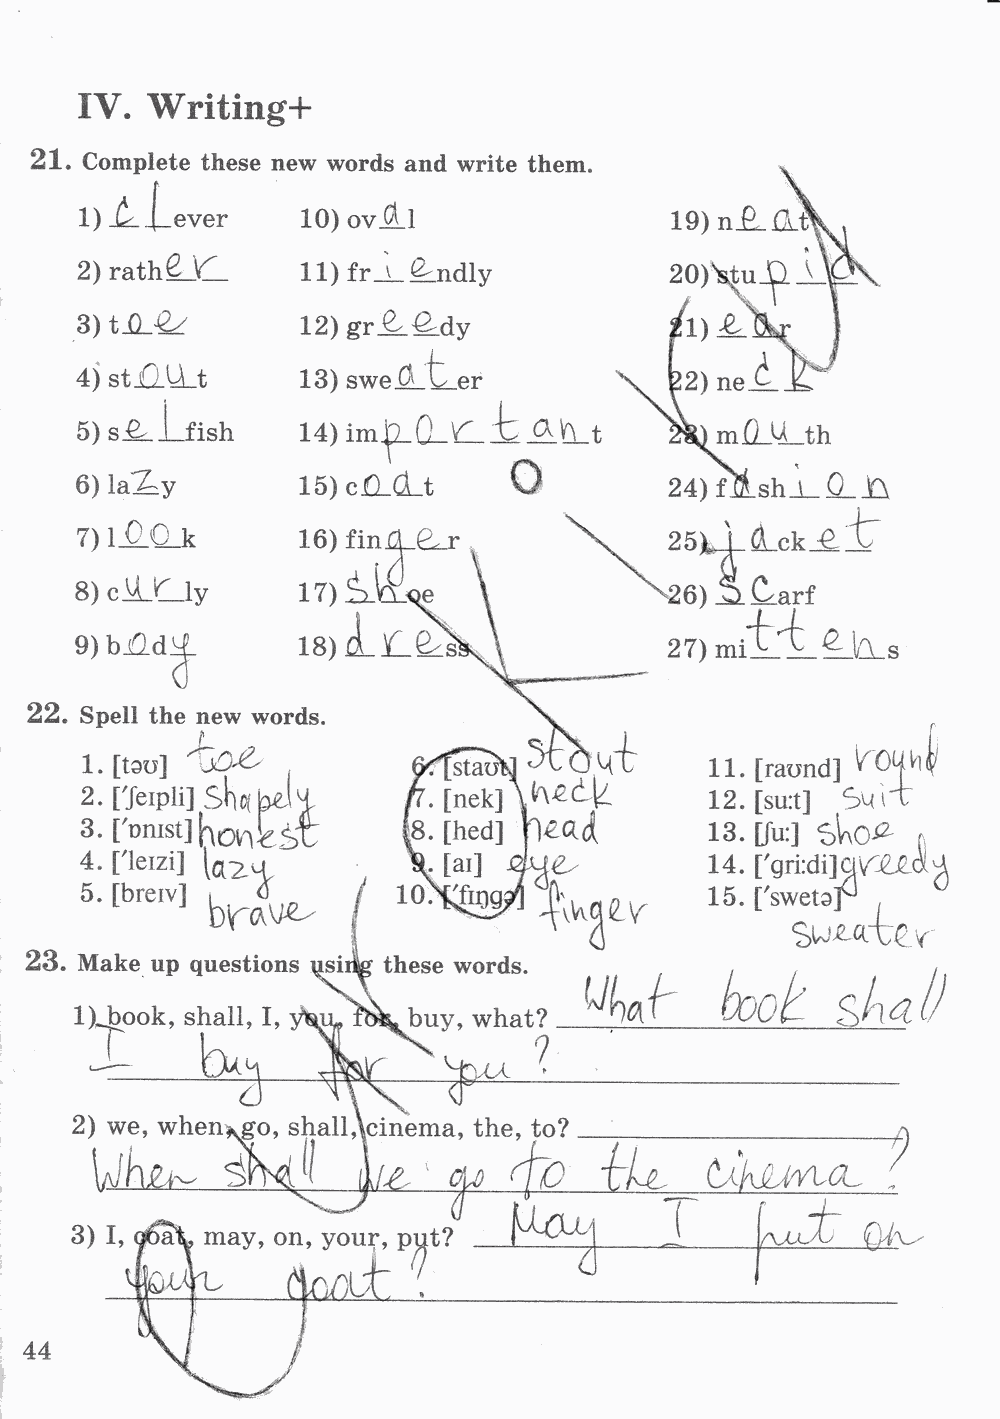 IV. Writing+
21. Complete these new words and write them.
1) clever
2) rather
3) toe
4) stout
5) selfish
6) lazy
7) look
8) curly
9) body
10) oval
11) friendly
12) greedy
13) sweater
14) important
15) coat
16) finger
17) shoe
18) dress
19) neat
20) stupid
21) ear
22) neck
23) mouth
24) fashion
25) jacket
26) scarf
27) mittens
22. Spell the new words.
1. [təʊ] toe
2. ['ʃeɪpli] shapely
3. ['ɒnɪst] honest
4. ['leɪzi] lazy
5. [breɪv] brave
6. [staʊt] stout
7. [nek] neck
8. [hed] head
9. [aɪ] eye
10. ['fɪŋgə] finger
11. [raʊnd] round
12. [su:t] suit
13. [ʃu:] shoe
14. ['gri:di] greedy
15. ['swetə] sweater
23. Make up questions using these words.
1) book, shall, I, you, for, buy, what? What book shall
I buy for you?
2) we, when, go, shall, cinema, the, to?
When shall we go to the cinema?
3) I, coat, may, on, your, put? May I put on
your coat?
44